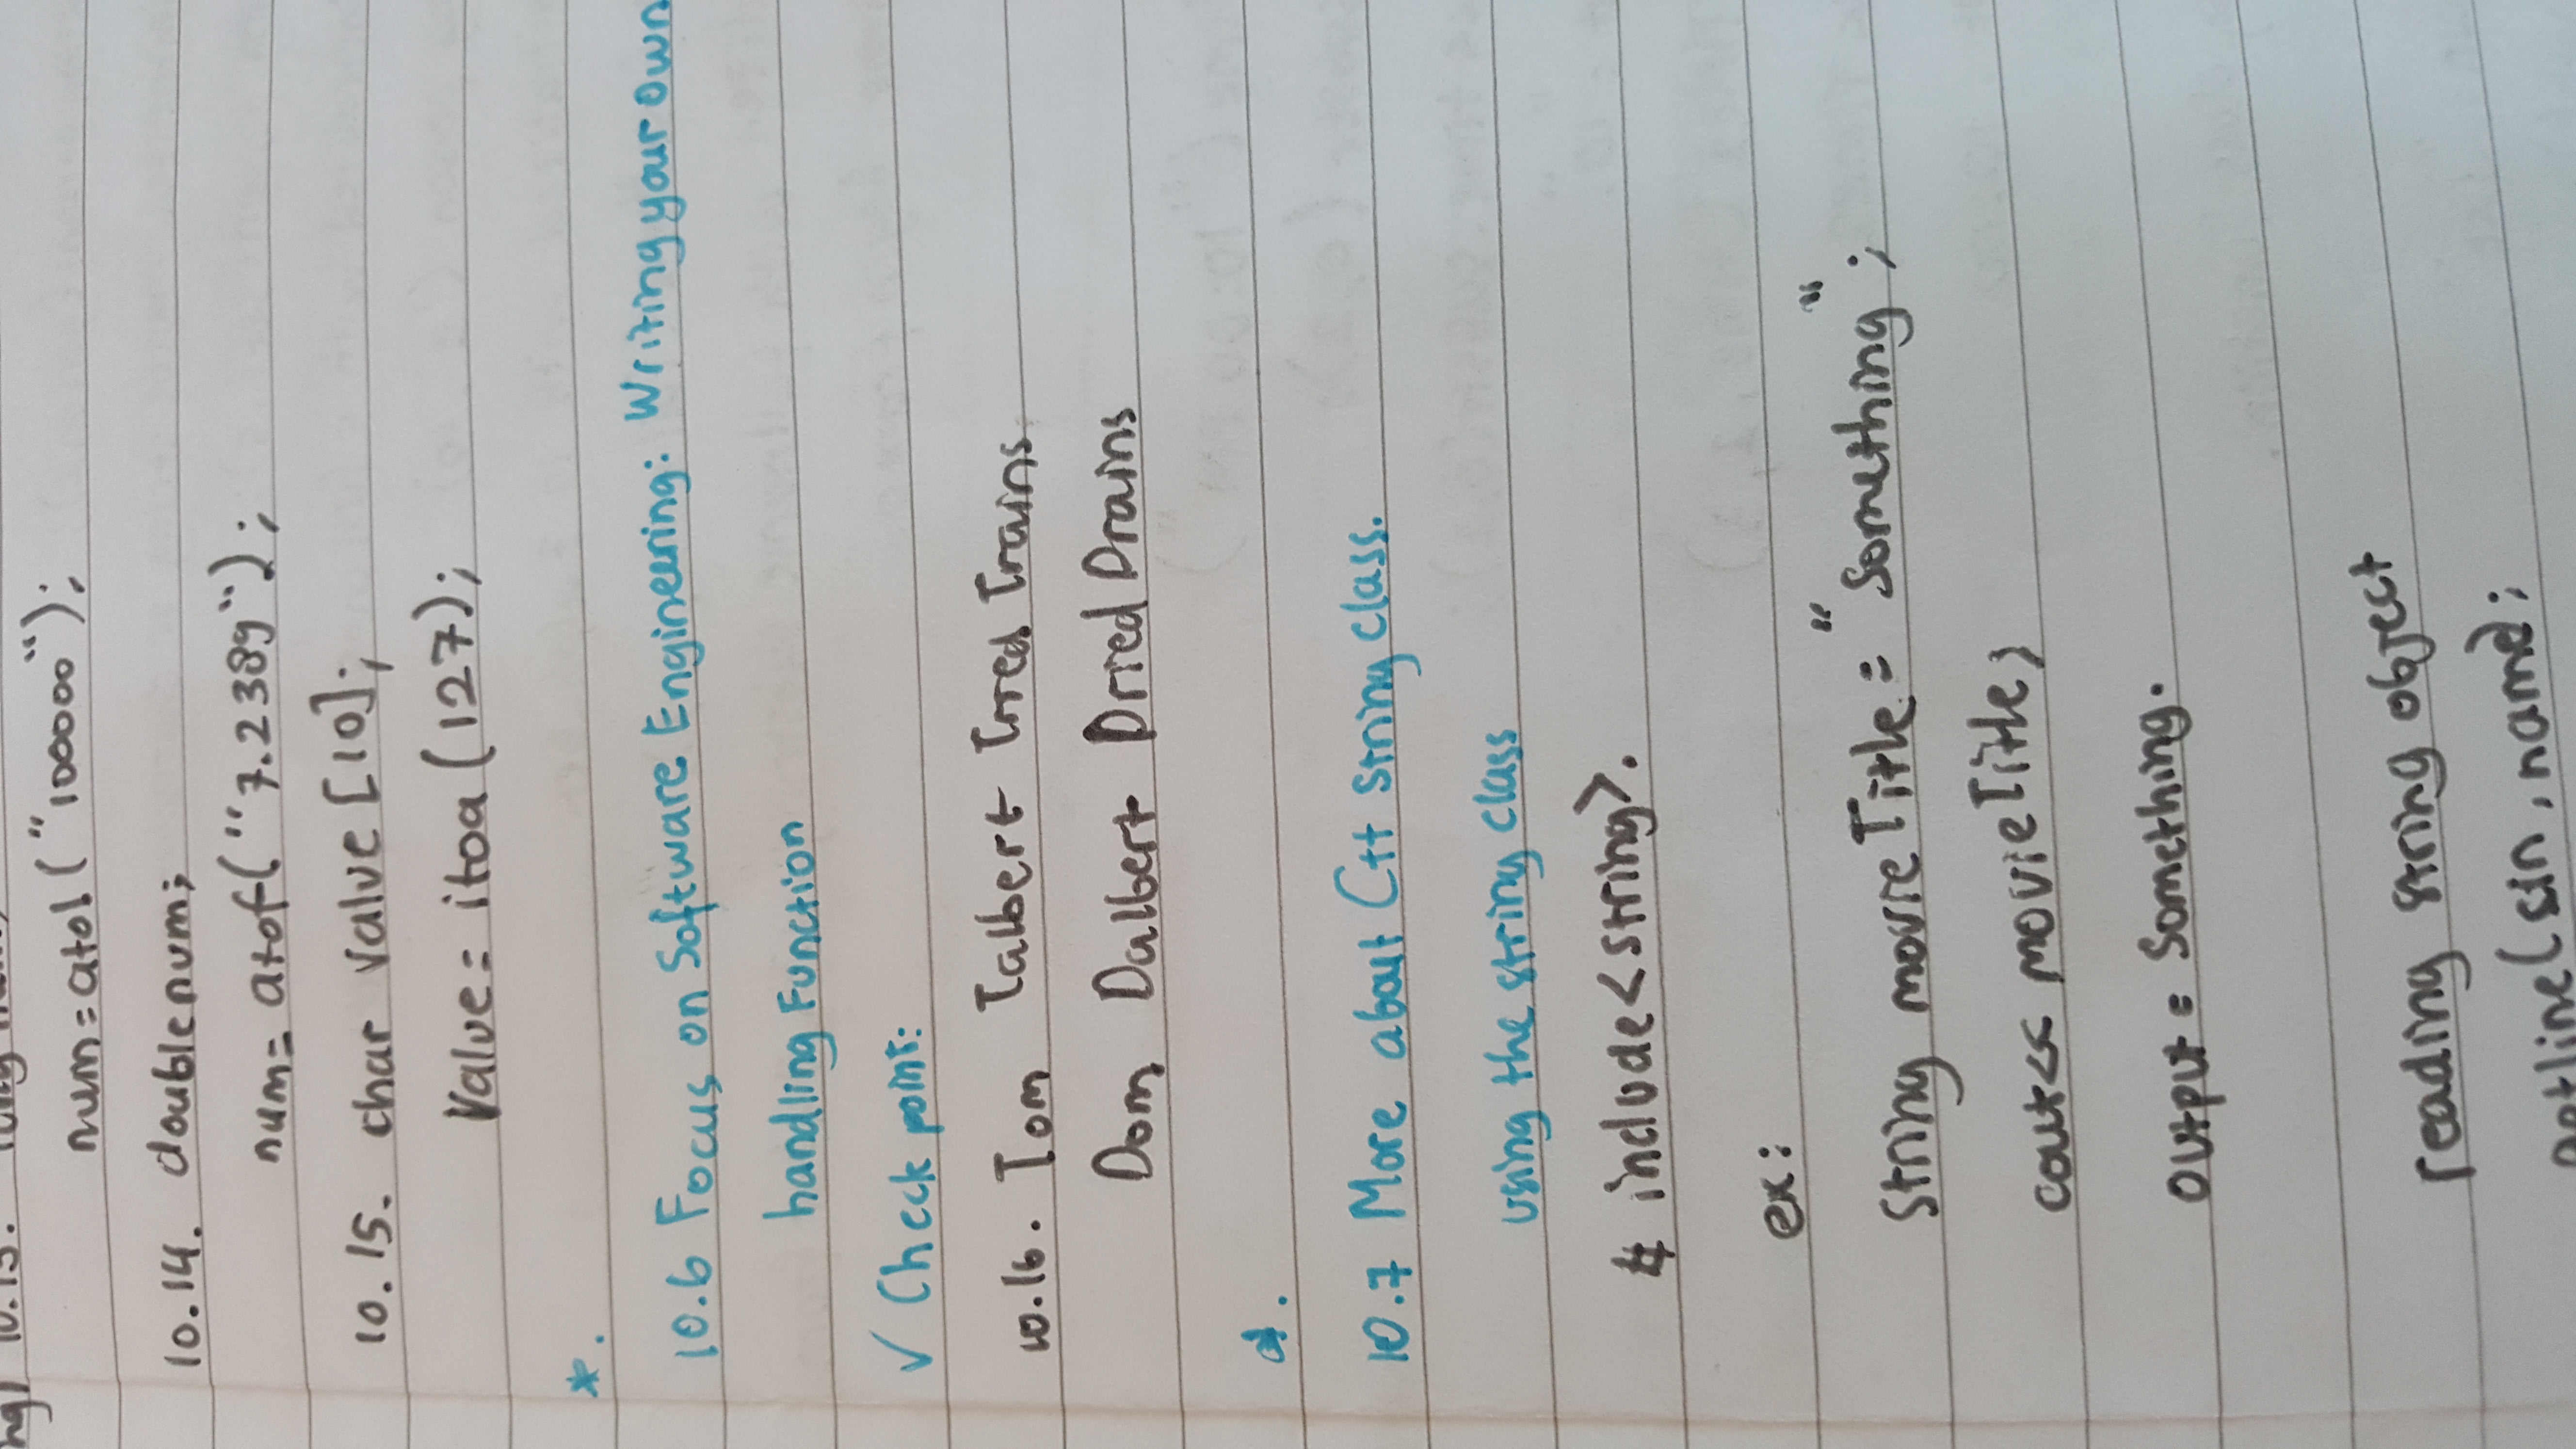 10.13.
num=atol("100000");
10.14. doublenum;
num= atof("7.2389");
10.15. char value [10];
Value= itoa (127);
*.
10.6 Focus on Software Engineering: Writing your own
handling Function
✓ Check point:
10.16. Tom Talbert Tried Trains
Dom Dalbert Dried Drains
10.7 More about C++ string class.
using the string class
# include<string>.
ex:
String movieTitle= "Something";
cout<< movieTitle;
Output = Something.
reading string object
getline(sin, name);